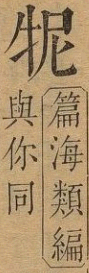 篇海類編
與你同